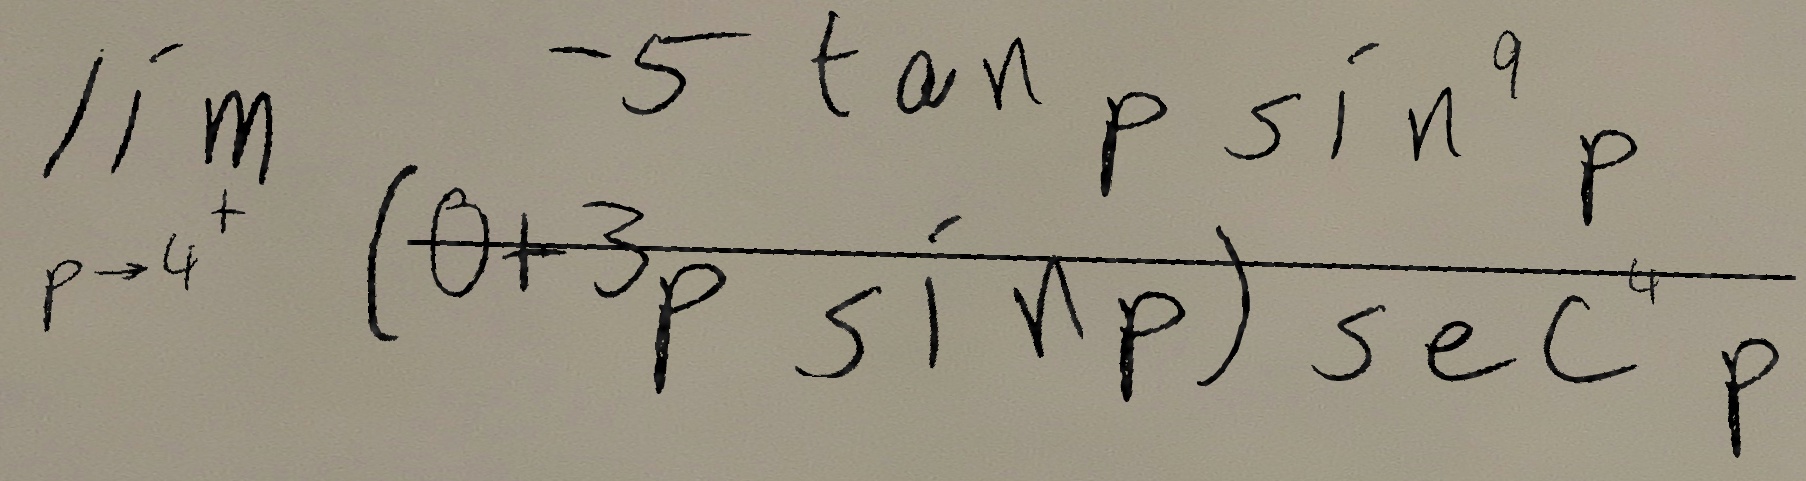 \lim_{p \to 4^{+}} \frac{-5 \tan p \sin^{9} p}{(0 + 3p \sin p) \sec^{4} p}